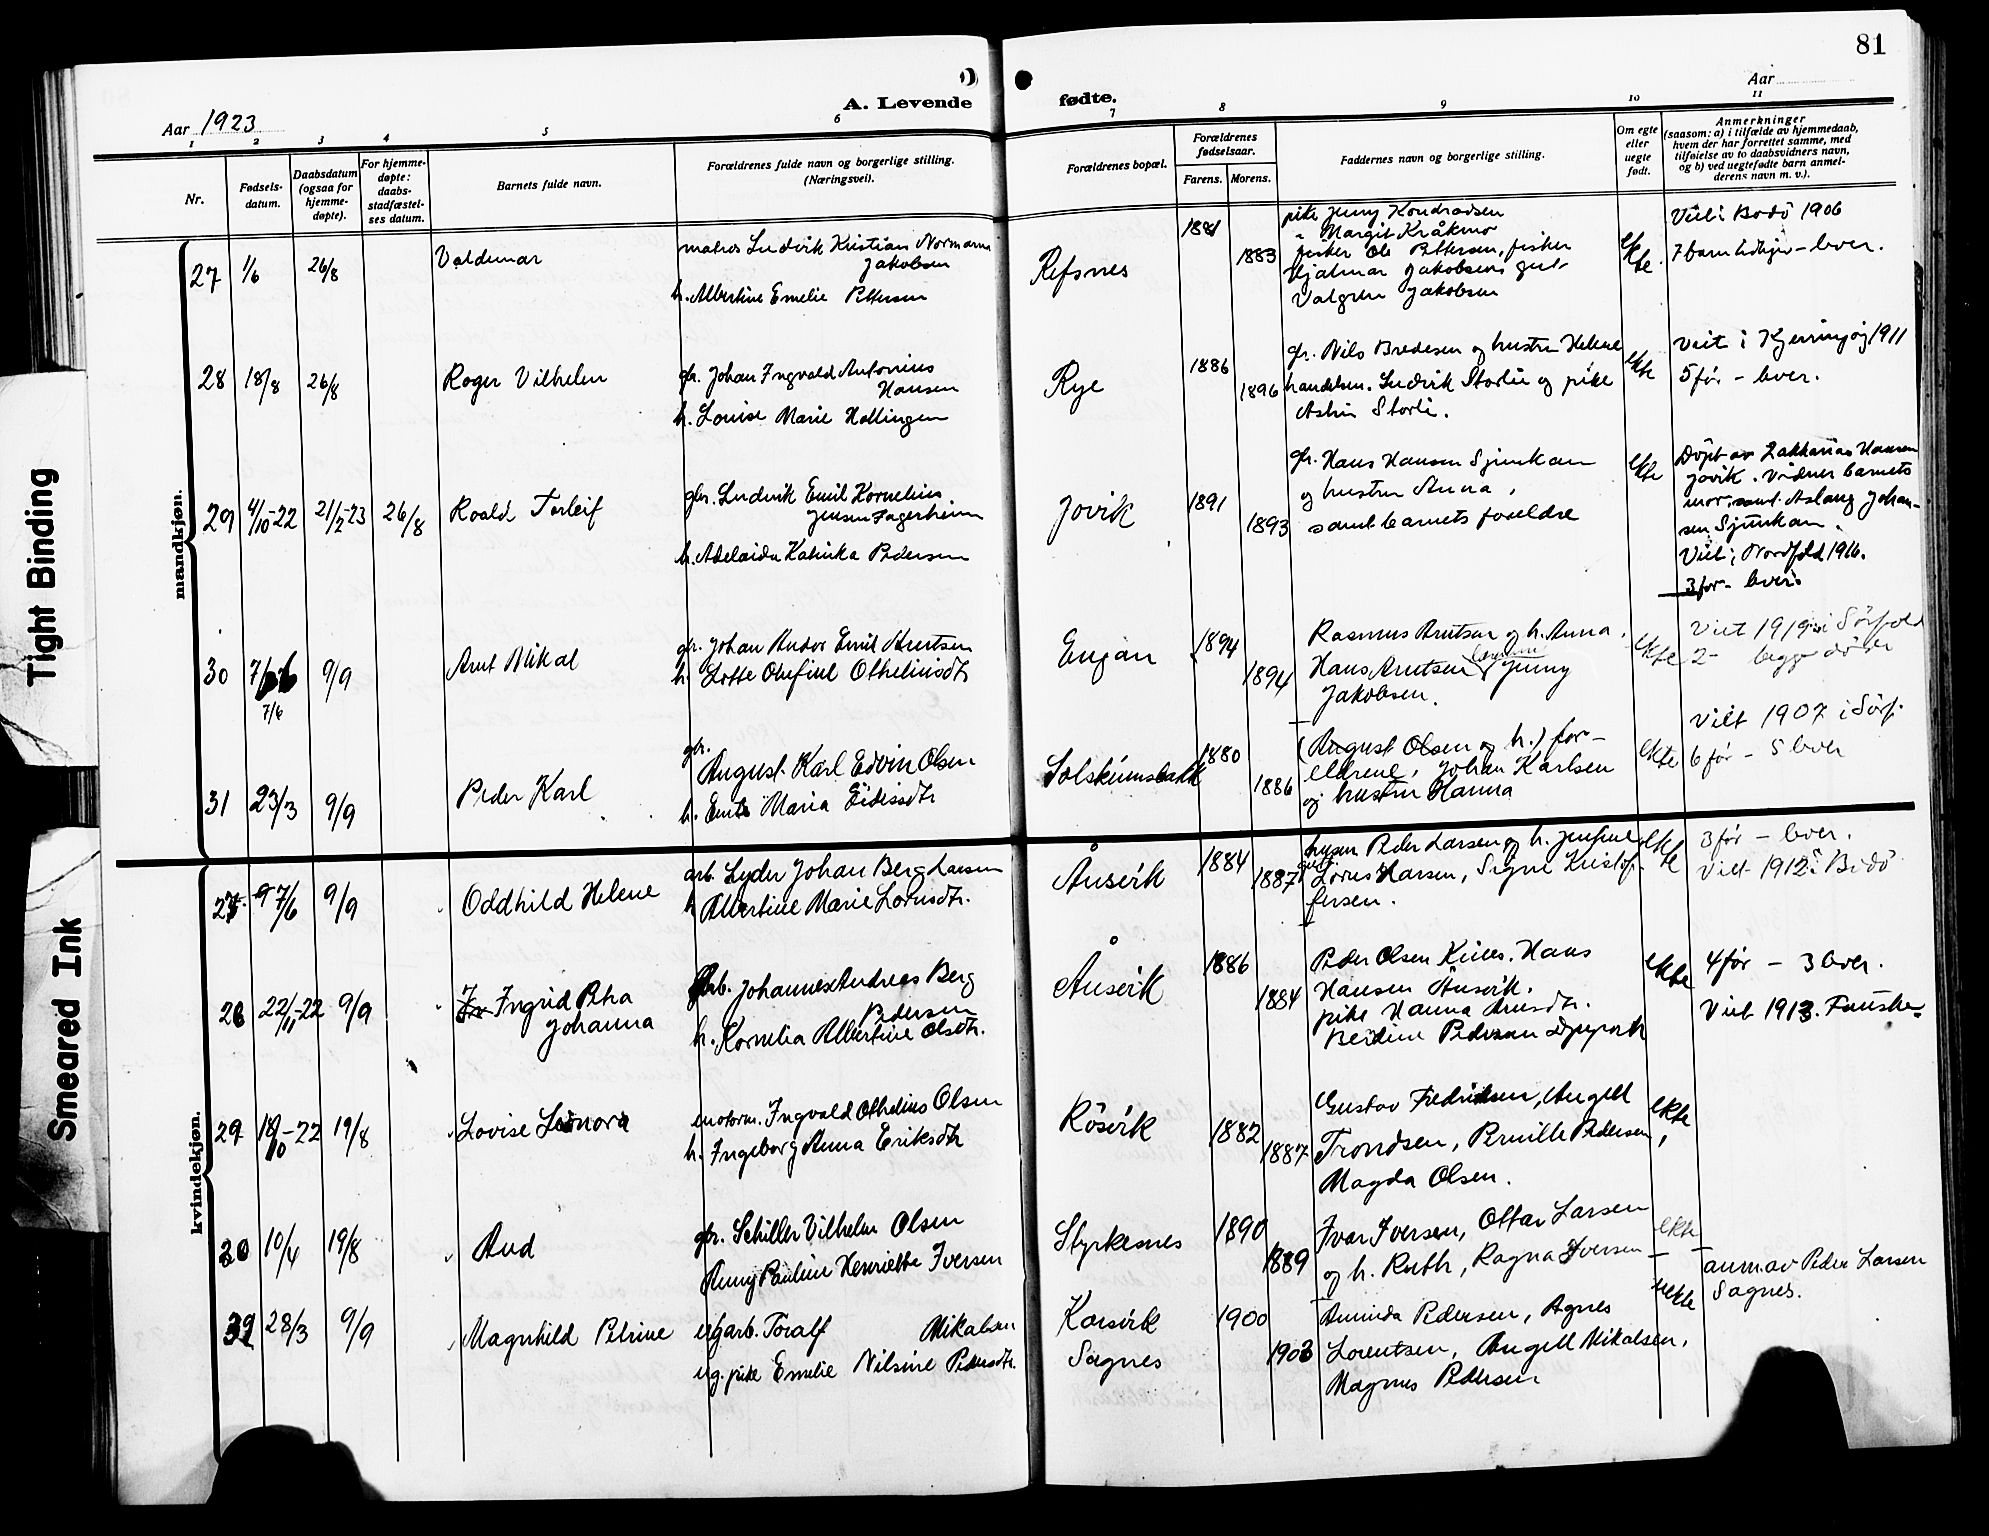 81
A. Levende fødte.
Aar 1923
Aar
1 2 3 4 5 6 7 8 9 10 11
Nr.
Fødsels-
datum.
Daabsdatum
(ogsaa for
hjemme-
døpte).
For hjemme-
døpte:
daabs-
stadfæstel-
ses datum.
Barnets fulde navn.
Forældrenes fulde navn og borgerlige stilling.
(Næringsvei).
Forældrenes bopæl.
Forældrenes
fødselsaar.
Farens. Morens.
Faddernes navn og borgerlige stilling.
Om egte
eller
uegte
født.
Anmerkninger
(saasom: a) i tilfælde av hjemmedaab,
hvem der har forrettet samme, med
tilføielse av to daabsvidners navn,
og b) ved uegtefødte barn anmel-
derens navn m. v.).
Tight Binding
Smeared Ink
mandkjøn.
27 1/6 26/8 Valdemar
matros Ludvik Kristian Normann
Jakobsen
h. Albertine Emelie Pettersen
Refsnes
1881
1883
pike Jenny Kondradsen
" Margit Kråkmo
fisker Ole Pettersen, fisker
Hjalmar Jakobsen, gut
Valgren Jakobsen
ekte
Viet i Bodö 1906
7 barn tidliger - lever.
28 18/8 26/8 Roger Vilhelm
gbr. Johan Ingvald Antonius
Hansen
h. Lovise Marie Hallingen
Rye
1886
1896
gbr. Nils Bredesen og hustru Helene
handelsm. Ludvik Storli og pike
Astrin Storli.
ekte
Viet i Kjerringöy 1911
5 för - lever.
29 4/10-22 21/2-23 26/8 Roald Torleif
gbr. Ludvik Emil Kornelius
Jensen Fagerheim
h. Adelaida Katinka Pedersen
Jovik
1891
1893
gbr. Hans Hansen Sjunkan
og hustru Anna,
samt barnets foreldre
ekte
Döpt av Zakkarias Hansen
Jovik. Vidner barnets
mor, samt Aslaug Johan-
sen Sjunkan.
Viet i Nordfold 1916.
3 för - lever.
30 7/6 9/9 Arnt Mikal
7/6
gbr. Johan Andor Emil Arntsen
h. Lotte Olufine Otheliusdtr
Engan
1894
1894
Rasmus Arntsen og h. Anna.
Hans Arntsen, Jenny
Jakobsen.
ekte
Viet 1919 i Sörfold
2 - begge döde
31 23/3 9/9 Peder Karl
gbr.
August Karl Edvin Olsen
h. Maria
1880
1886
(August Olsen og h.) for-
eldrene, Johan Karlsen
og hustru Hanna
ekte
Viet 1907 i Sörf.
6 för - 5 lever
kvindekjøn.
27 7/6 9/9 Oddhild Helene
arb. Lyder Johan Berg Larsen
h. Albertine Marie Lornsdtr.
Ånsvik
1884
1887
husm Peder Larsen og h. Josefine
Lorns Hansen, Signe Kristof-
fersen.
ekte
3 för - lever.
Viet 1912 i Bodö
28 22/11-22 9/9 Ingrid Petra
Johanna
arb. Johannes Andreas Berg
Pedersen
h. Kornelia Albertine Olsdtr.
Ånsvik
1886
1884
Peder Olsen Kines. Hans
Hansen Ånsvik.
pike Hanna Arnsdtr.
Berdine Pedersen
ekte
4 för - 3 lever.
Viet 1913. Fauske
29 18/10-22 19/8 Lovise Leonora
motorm. Ingvald Othelius Olsen
h. Ingeborg Anna Eriksdtr
Rösvik
1882
1887
Gustav Fredriksen, Angell
Trondsen, Pernille Pedersen,
Magda Olsen.
ekte
30 10/4 19/8 Aud
gbr. Schiller Vilhelm Olsen
Anny Pauline Henriette Iversen
Styrkesnes
1890
1889
Ivar Iversen, Ottar Larsen
og h. Ruth, Ragna Iversen
ekte
31 28/3 9/9 Magnhild Petrine
ugarb. Toralf Mikalsen
ug. pike Emelie Nilsine Pedersdtr.
Korsvik
Sagnes
1900
1903
Aminda Pedersen, Agnes
Lorentsen, Angell Mikalsen,
Magnus Pedersen
uekte
anm. av Peder Larsen
Sagnes.